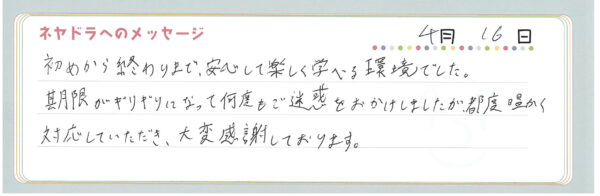 ネヤドラへのメッセージ 4月 16日
初めから終わりまで、安心して楽しく学べる環境でした。
期限がギリギリになって何度もご迷惑をおかけしましたが、都度温かく
対応していただき、大変感謝しております。